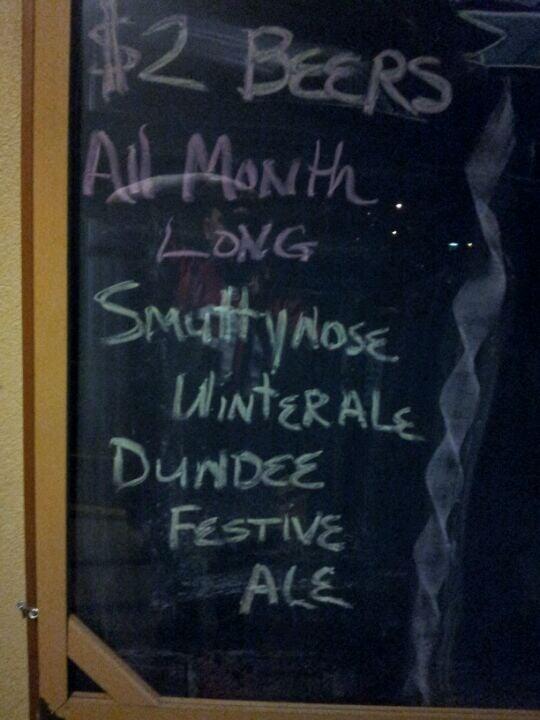 $2 BEERS
All MONth
LONG
SmuttyNOSE
WINtER ALE
DUNDEE
FESTIVE
ALE